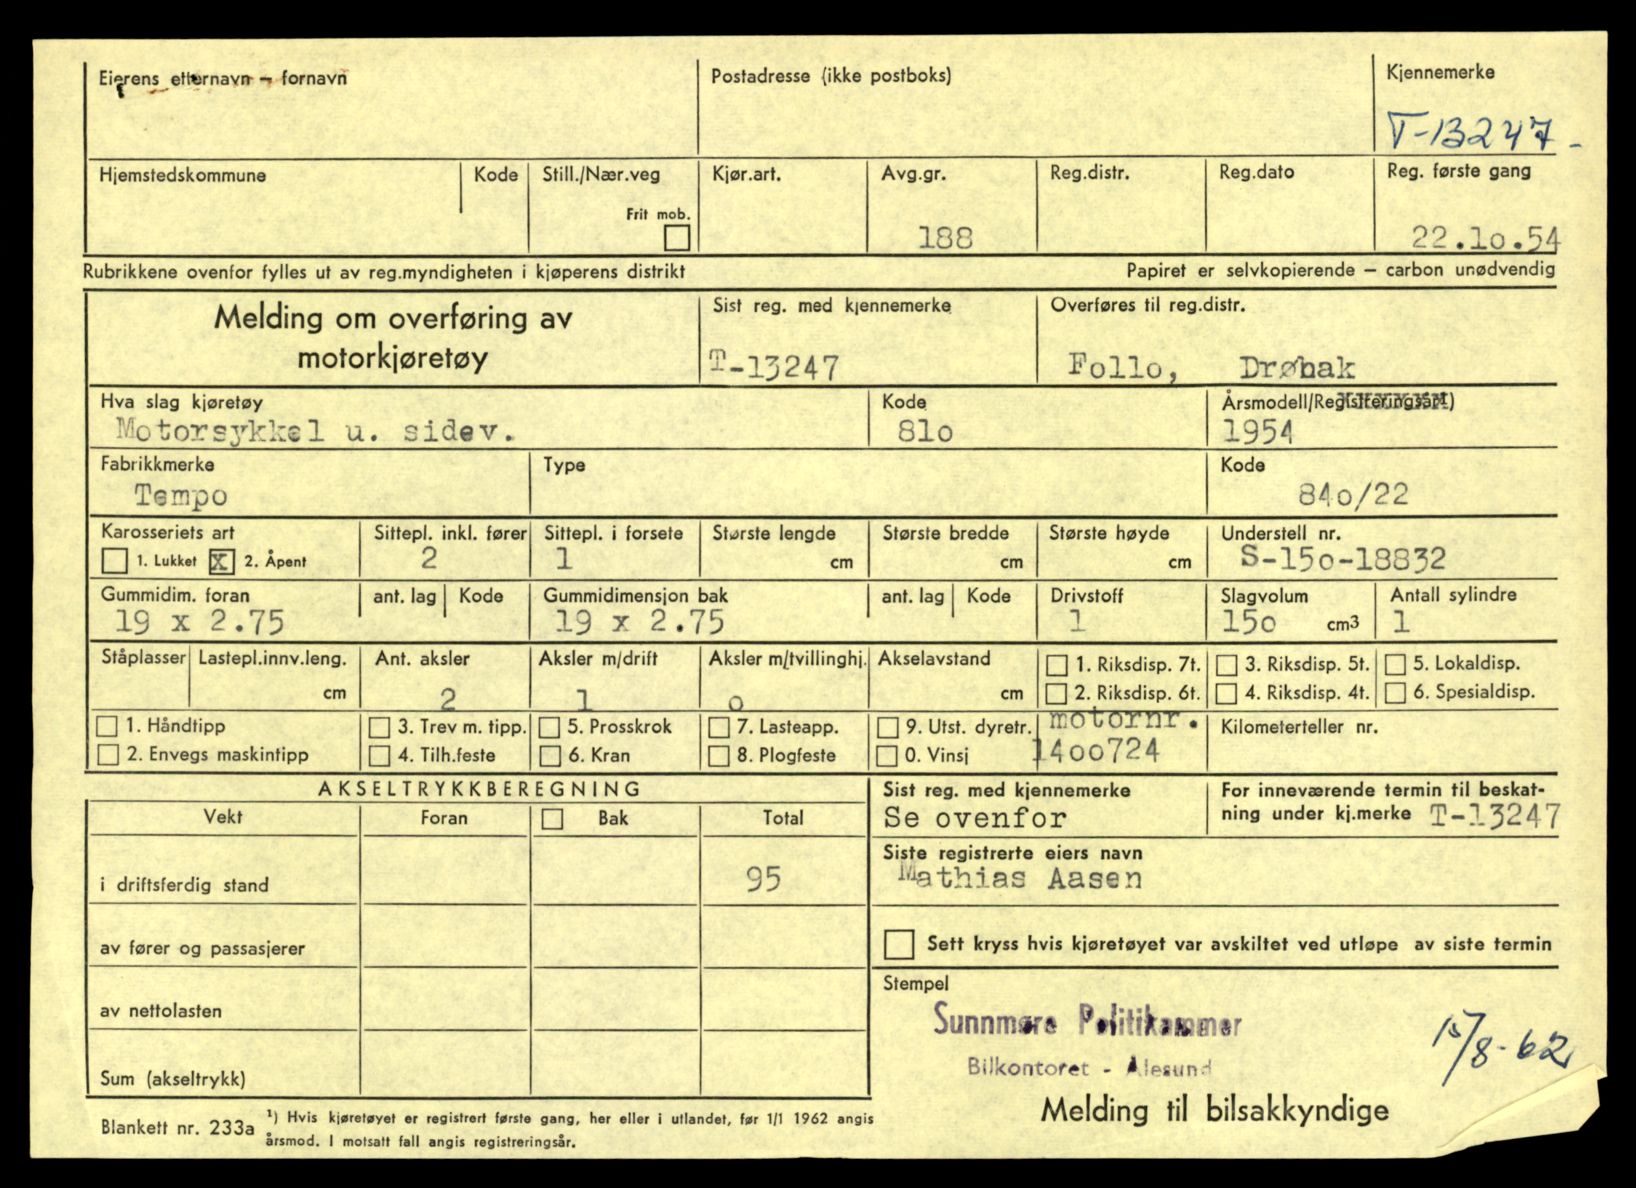 Eierens etternavn – fornavn
Postadresse (ikke postboks)
Kjennemerke
T-13247-
Hjemstedskommune
Kode
Still./Nær.veg
Frit mob.
Kjør.art.
Avg.gr.
188
Reg.distr.
Reg.dato
Reg. første gang
22.1o.54
Rubrikkene ovenfor fylles ut av reg.myndigheten i kjøperens distrikt
Papiret er selvkopierende – carbon unødvendig
Melding om overføring av
motorkjøretøy
Sist reg. med kjennemerke
T-13247
Overføres til reg.distr.
Follo, Drøbak
Hva slag kjøretøy
Motorsykkel u. sidev.
Kode
81o
Årsmodell/Registreringsår1)
1954
Fabrikkmerke
Tempo
Type
Kode
84o/22
Karosseriets art
1. Lukket X 2. Åpent
Sittepl. inkl. fører
2
Sittepl. i forsete
1
Største lengde
cm
Største bredde
cm
Største høyde
cm
Understell nr.
S-15o-18832
Gummidim. foran
19 x 2.75
ant. lag
Kode
Gummidimensjon bak
19 x 2.75
ant. lag
Kode
Drivstoff
1
Slagvolum
15o cm3
Antall sylindre
1
Ståplasser
Lastepl.innv.leng.
cm
Ant. aksler
2
Aksler m/drift
1
Aksler m/tvillinghj.
o
Akselavstand
cm
1. Riksdisp. 7t.
2. Riksdisp. 6t.
3. Riksdisp. 5t.
4. Riksdisp. 4t.
5. Lokaldisp.
6. Spesialdisp.
1. Håndtipp
2. Envegs maskintipp
3. Trev m. tipp.
4. Tilh.feste
5. Prosskrok
6. Kran
7. Lasteapp.
8. Plogfeste
9. Utst. dyretr.
0. Vinsj
motornr.
14oo724
Kilometerteller nr.
AKSELTRYKKBEREGNING
Vekt
Foran
Bak
Total
i driftsferdig stand
95
av fører og passasjerer
av nettolasten
Sum (akseltrykk)
Sist reg. med kjennemerke
Se ovenfor
For inneværende termin til beskat-
ning under kj.merke T-13247
Siste registrerte eiers navn
Mathias Aasen
Sett kryss hvis kjøretøyet var avskiltet ved utløpe av siste termin
Stempel
Sunnmøre Politikammer
Bilkontoret - Ålesund
15/8-62
Melding til bilsakkyndige
Blankett nr. 233a
1) Hvis kjøretøyet er registrert første gang, her eller i utlandet, før 1/1 1962 angis
årsmod. I motsatt fall angis registreringsår.